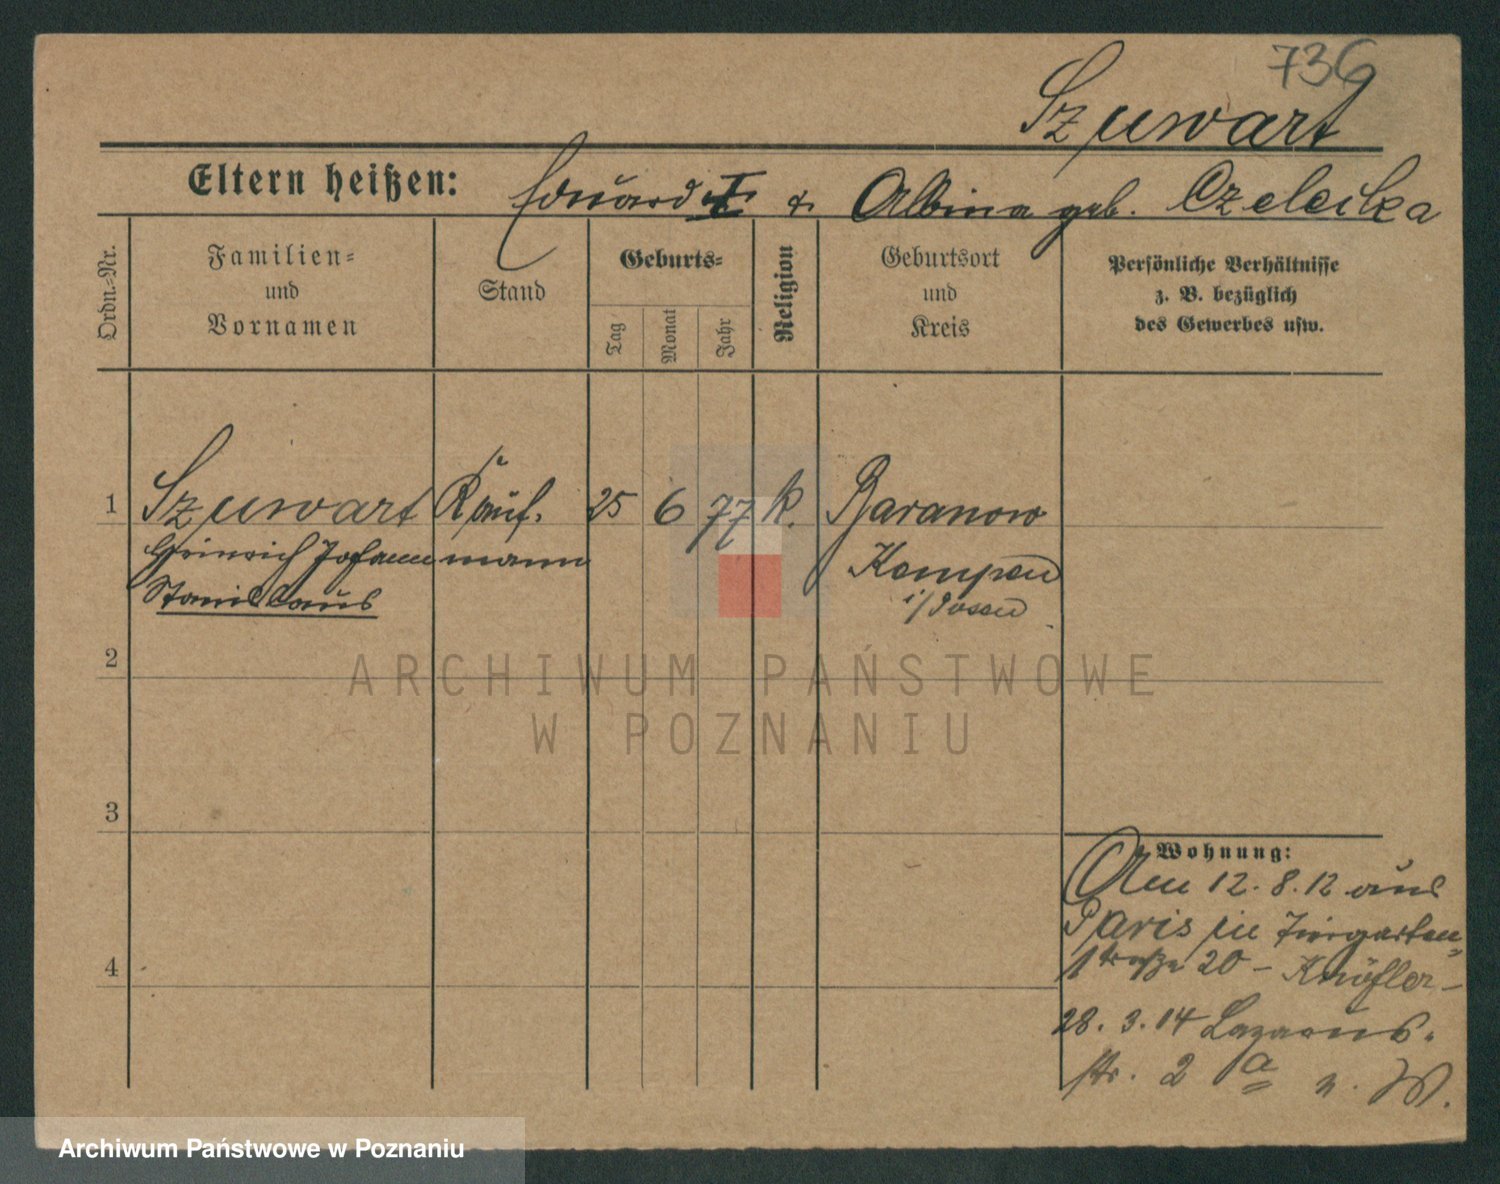 736
Szuwart
Eltern heißen: Eduard & Albina geb. Czelcika
Ordn.-Nr.
Familien- und Vornamen
Stand
Geburts-
Tag
Monat
Jahr
Religion
Geburtsort und Kreis
Persönliche Verhältnisse
z. B. bezüglich
des Gewerbes usw.
1 Szuwart Kauf. 25 6 77 k. Baranow
Heinrich Johann mann Kempen
Stanislaus i/Posen
2
3
4
Wohnung:
Am 12.8.12 aus
Paris in Tiergarten-
straße 20 – Knöfler –
28.3.14 Lazarus-
str. 2 a n. W.
ARCHIWUM PAŃSTWOWE
W POZNANIU
Archiwum Państwowe w Poznaniu